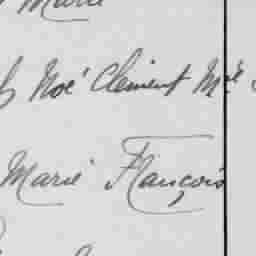 Marie
Noé Clement Mle
Marie François